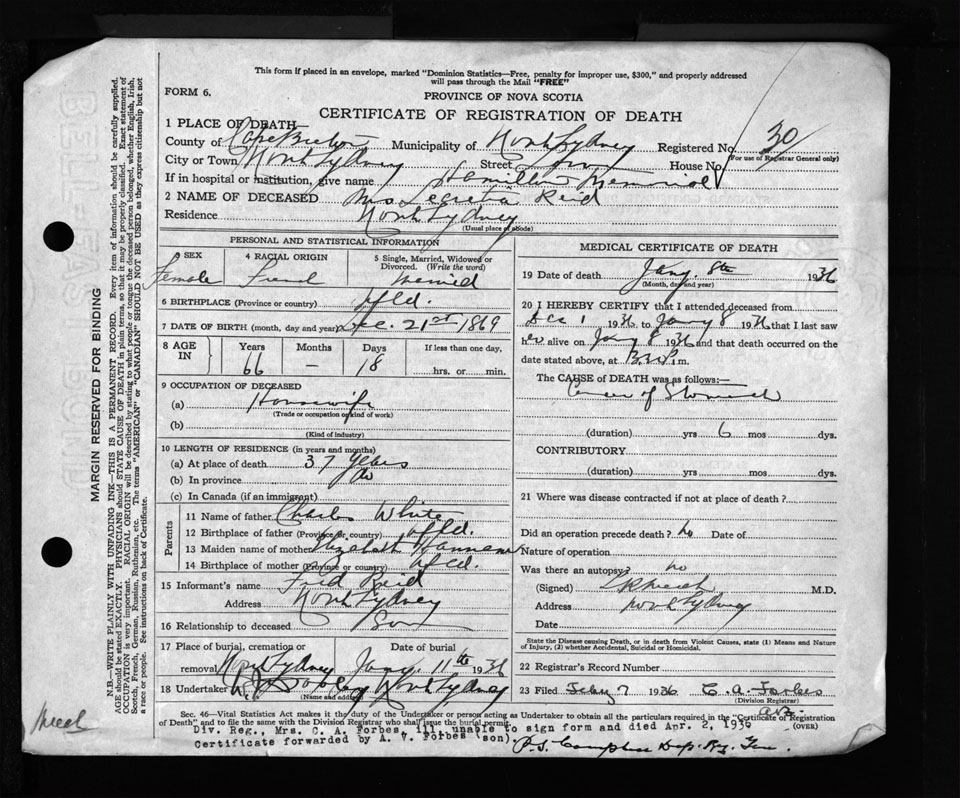 This form if placed in an envelope, marked "Dominion Statistics—Free, penalty for improper use, $300," and properly addressed
will pass through the Mail "FREE"
FORM 6.
PROVINCE OF NOVA SCOTIA
CERTIFICATE OF REGISTRATION OF DEATH
1 PLACE OF DEATH—
County of Cape Breton Municipality of North Sydney Registered No. 30
(For use of Registrar General only)
City or Town North Sydney Street House No.
If in hospital or institution, give name Hamilton Memorial
2 NAME OF DECEASED Mrs Legretia Reid
Residence North Sydney
(Usual place of abode)
PERSONAL AND STATISTICAL INFORMATION
SEX 4 RACIAL ORIGIN 5 Single, Married, Widowed or Divorced. (Write the word)
Female
6 BIRTHPLACE (Province or country) Nfld.
7 DATE OF BIRTH (month, day and year) Dec. 21st 1869
8 AGE IN Years Months Days If less than one day,
66 — 18 hrs. or min.
9 OCCUPATION OF DECEASED
(a) Housewife
(Trade or occupation or kind of work)
(b)
(Kind of industry)
10 LENGTH OF RESIDENCE (in years and months)
(a) At place of death 37 years
(b) In province do
(c) In Canada (if an immigrant)
Parents
11 Name of father Charles White
12 Birthplace of father (Province or country) Nfld.
13 Maiden name of mother Elizabeth
14 Birthplace of mother (Province or country) Nfld.
15 Informant's name Fred Reid
Address North Sydney
16 Relationship to deceased Son
17 Place of burial, cremation or removal Date of burial
North Sydney Jany. 11th 1936
18 Undertaker North Sydney
(Name and address)
MEDICAL CERTIFICATE OF DEATH
19 Date of death Jany. 8th 1936
(Month, day and year)
20 I HEREBY CERTIFY that I attended deceased from
Dec 1 1936 to Jany 8 1936 that I last saw
her alive on Jany 8 1936 and that death occurred on the
date stated above, at m.
The CAUSE of DEATH was as follows:—
Cancer of Stomach
(duration) yrs 6 mos dys.
CONTRIBUTORY
(duration) yrs mos dys.
21 Where was disease contracted if not at place of death ?
Did an operation precede death ? no Date of
Nature of operation
Was there an autopsy? no
(Signed) M.D.
Address North Sydney
Date
State the Disease causing Death, or in death from Violent Causes, state (1) Means and Nature
of Injury, (2) whether Accidental, Suicidal or Homicidal.
22 Registrar's Record Number
23 Filed Feby 7 1936 C. A. Forbes
(Division Registrar)
Sec. 46—Vital Statistics Act makes it the duty of the Undertaker or person acting as Undertaker to obtain all the particulars required in the "Certificate of Registration
of Death" and to file the same with the Division Registrar who shall issue the burial permit. (OVER)
Div. Reg., Mrs. C. A. Forbes, ill, unable to sign form and died Apr. 2, 1936
Certificate forwarded by A. V. Forbes (son).
MARGIN RESERVED FOR BINDING
N.B.—WRITE PLAINLY WITH UNFADING INK—THIS IS A PERMANENT RECORD. Every item of information should be carefully supplied.
AGE should be stated EXACTLY. PHYSICIANS should STATE CAUSE OF DEATH in plain terms, so that it may be properly classified. Exact statement of
OCCUPATION is very important. RACIAL ORIGIN will be described by stating to what people or tongue the deceased person belonged, whether English, Irish,
Scotch, French, German, Russian, Ruthenian, etc. The terms "AMERICAN" or "CANADIAN" SHOULD NOT BE USED as they express citizenship but not
a race or people. See instructions on back of Certificate.